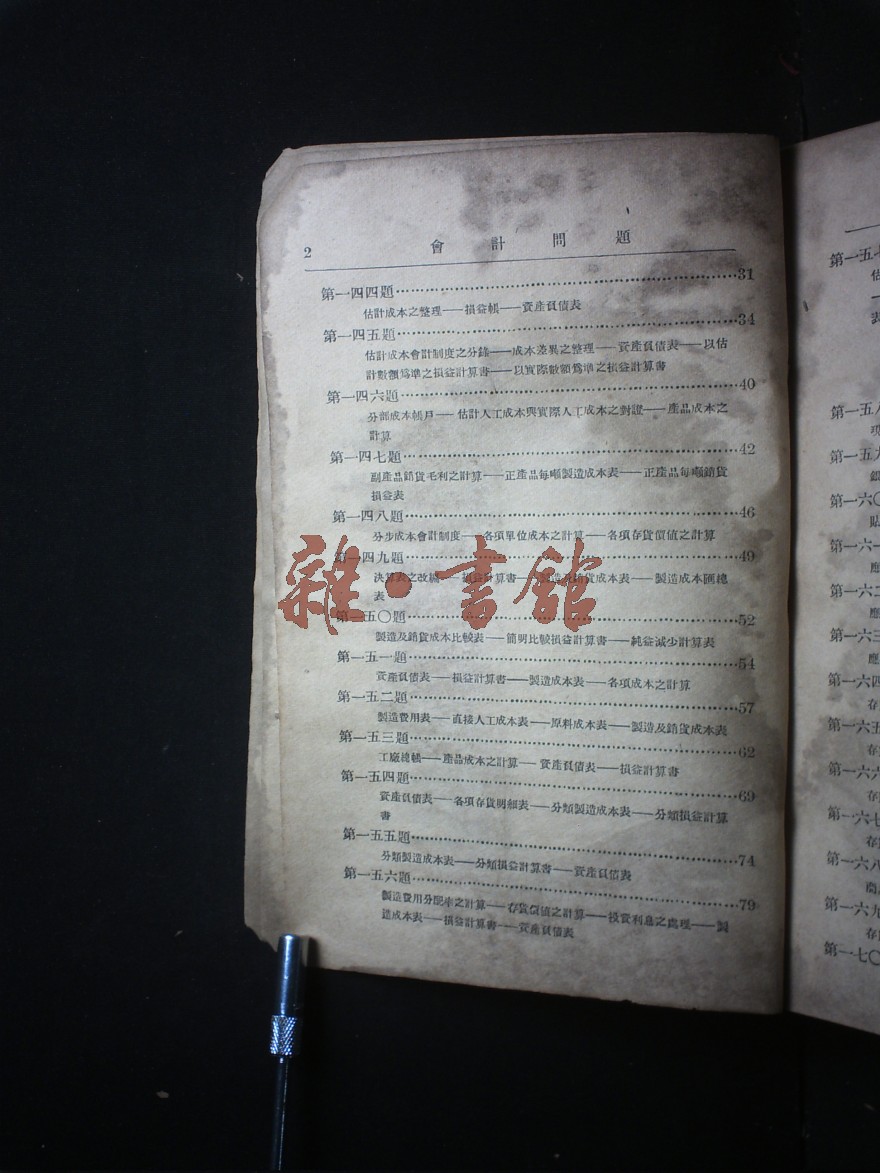 2 會計問題
第一四四題……31
估計成本之整理——損益帳——資產負債表
第一四五題……34
估計成本會計制度之分錄——成本差異之整理——資產負債表——以估
計數額爲準之損益計算書——以實際數額爲準之損益計算書
第一四六題……40
分部成本帳戶——估計人工成本與實際人工成本之對證——產品成本之
計算
第一四七題……42
副產品銷貨毛利之計算——正產品每噸製造成本表——正產品每噸銷貨
損益表
第一四八題……46
分步成本會計制度——各項單位成本之計算——各項存貨價值之計算
第一四九題……49
決算表之改編——損益計算書——製造及銷貨成本表——製造成本匯總
表
第一五〇題……52
製造及銷貨成本比較表——簡明比較損益計算書——純益減少計算表
第一五一題……54
資產負債表——損益計算書——製造成本表——各項成本之計算
第一五二題……57
製造費用表——直接人工成本表——原料成本表——製造及銷貨成本表
第一五三題……62
工廠總帳——產品成本之計算——資產負債表——損益計算書
第一五四題……69
資產負債表——各項存貨明細表——分類製造成本表——分類損益計算
書
第一五五題……74
分類製造成本表——分類損益計算書——資產負債表
第一五六題……79
製造費用分配率之計算——存貨價值之計算——投資利息之處理——製
造成本表——損益計算書——資產負債表
雜·書館
第一五七
估
表
第一五八
第一五九
第一六〇
貼
第一六一
應
第一六二
應
第一六三
應
第一六四
存
第一六五
存
第一六六
存
第一六七
存
第一六八
第一六九
存
第一七〇